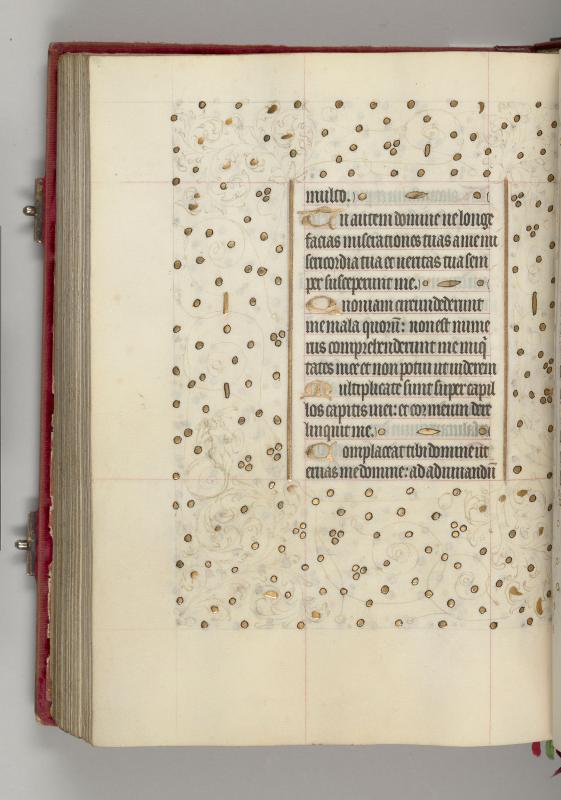 multo.
Tu autem domine ne longe
facias miserationes tuas a me mi
sericordia tua et veritas tua sem
per susceperunt me.
Quoniam circundederunt
me mala quorū: non est nume
rus comprehenderunt me iniq̄
tates mee et non potui ut viderem
Multiplicate sunt super capil
los capitis mei: et cor meum dere
linquit me.
Complaceat tibi domine ut
eruas me domine: ad adiuuandū